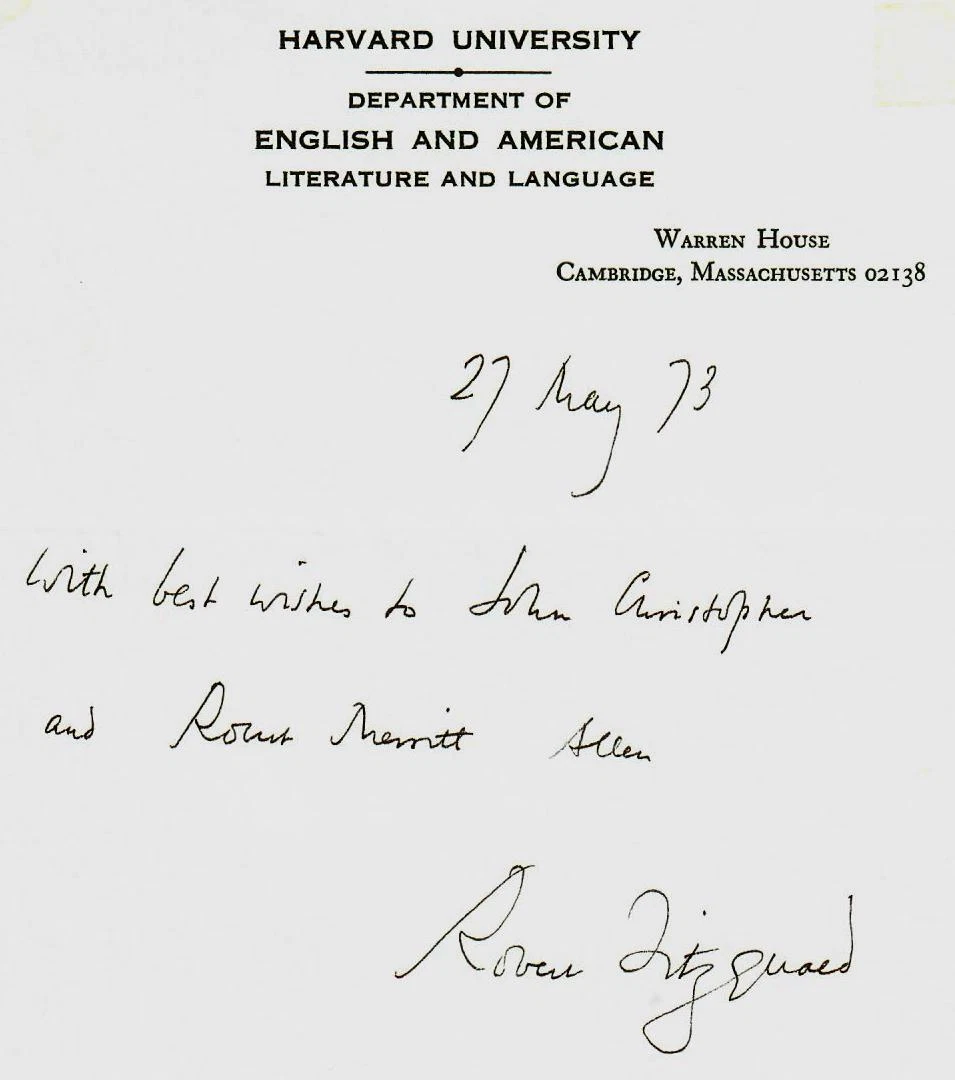 HARVARD UNIVERSITY
DEPARTMENT OF
ENGLISH AND AMERICAN
LITERATURE AND LANGUAGE
WARREN HOUSE
CAMBRIDGE, MASSACHUSETTS 02138
27 May 73
With best wishes to John Christopher
and Robert Merritt Allen
Robert Fitzgerald